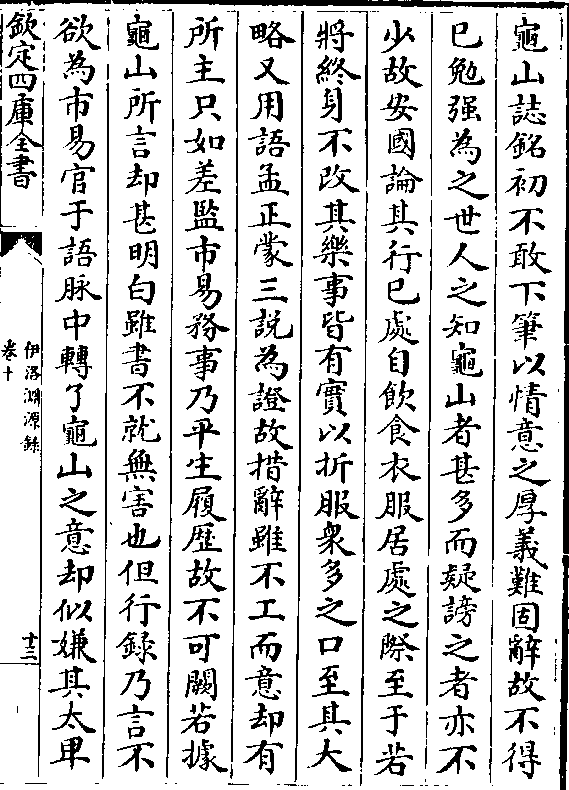 龜山誌銘初不敢下筆以情意之厚義難固辭故不得
已勉强為之世人之知龜山者甚多而疑謗之者亦不
少故安國論其行已處自飲食衣服居處之際至于若
將終身不改其樂事皆有實以折服衆多之口至其大
略又用語孟正蒙三説為證故措辭雖不工而意却有
所主只如差監市易務事乃平生履歷故不可闕若據
龜山所言却甚明白雖書不就無害也但行録乃言不
欲為市易官于語脉中轉了龜山之意却似嫌其太卑
欽定四庫全書
伊洛淵源録
卷十
十三